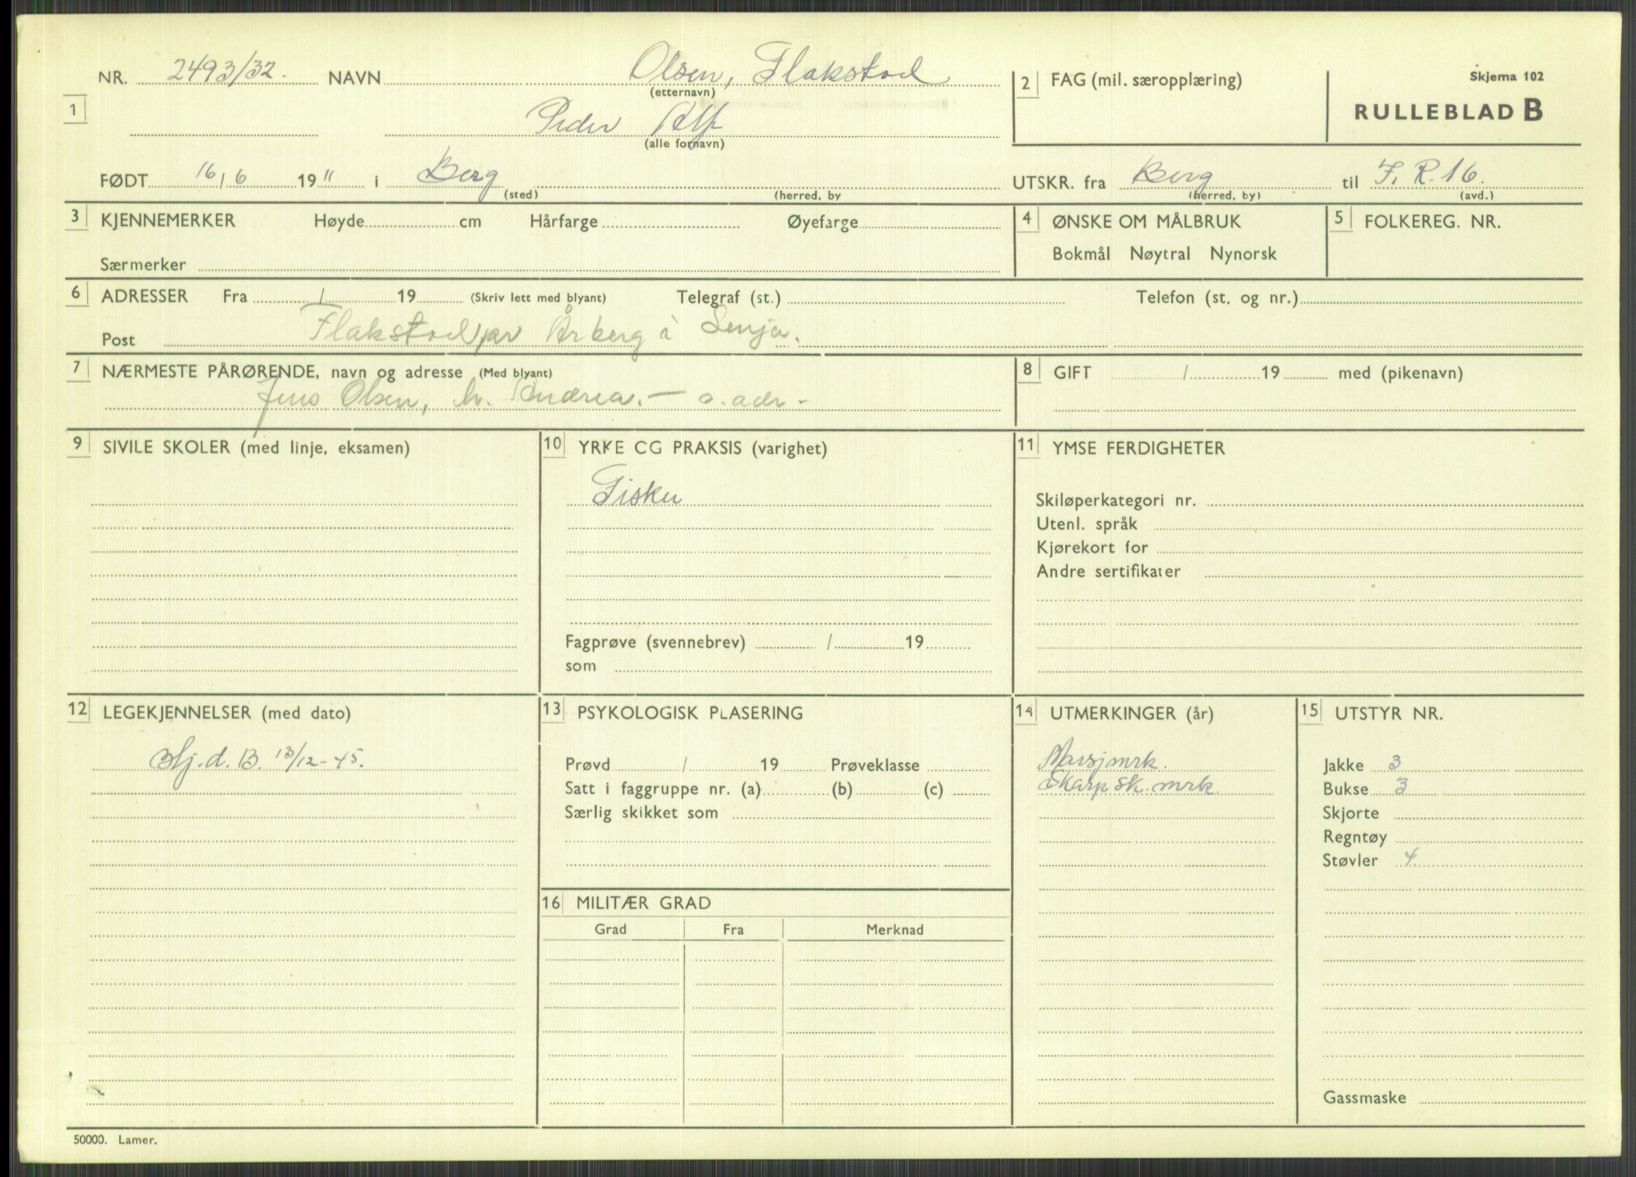 NR. 2493/32. NAVN Olsen, Flakstad
(etternavn)
1
Peder Alf
(alle fornavn)
FØDT 16/6 1911 i Berg
(sted) (herred, by
2 FAG (mil. særopplæring)
Skjema 102
RULLEBLAD B
UTSKR. fra Berg til F. R. 16.
(herred, by) (avd.)
3 KJENNEMERKER Høyde cm Hårfarge Øyefarge
Særmerker
4 ØNSKE OM MÅLBRUK
Bokmål Nøytral Nynorsk
5 FOLKEREG. NR.
6 ADRESSER Fra / 19 (Skriv lett med blyant) Telegraf (st.) Telefon (st. og nr.)
Post Flakstad pr Årberg i Senja.
7 NÆRMESTE PÅRØRENDE, navn og adresse (Med blyant)
Jens Olsen, m. Andrea. — s. adr -
8 GIFT / 19 med (pikenavn)
9 SIVILE SKOLER (med linje, eksamen)
10 YRKE CG PRAKSIS (varighet)
Fisker
Fagprøve (svennebrev) / 19
som
11 YMSE FERDIGHETER
Skiløperkategori nr.
Utenl. språk
Kjørekort for
Andre sertifikater
12 LEGEKJENNELSER (med dato)
Stj. d. B. 13/12-45.
13 PSYKOLOGISK PLASERING
Prøvd / 19 Prøveklasse
Satt i faggruppe nr. (a) (b) (c)
Særlig skikket som
14 UTMERKINGER (år)
Marsjmrk.
Skarpsk. mrk.
15 UTSTYR NR.
Jakke 3
Bukse 3
Skjorte
Regntøy
Støvler 4
Gassmaske
16 MILITÆR GRAD
Grad Fra Merknad
50000. Lamer.